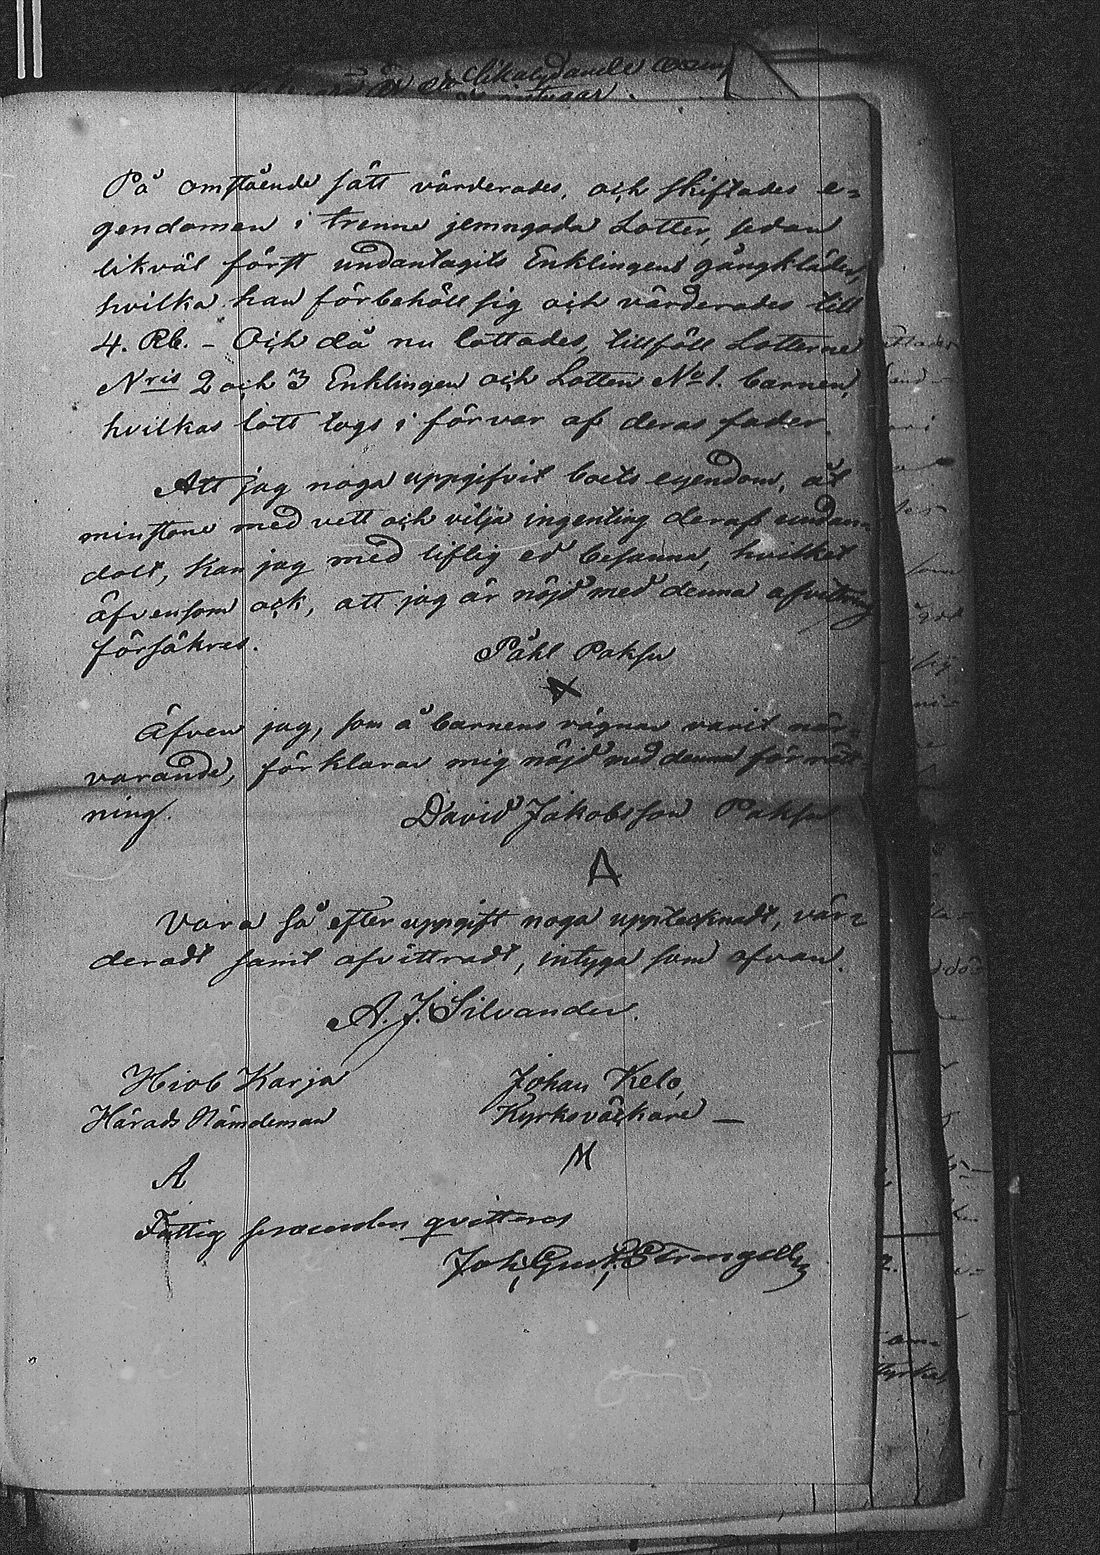 likalydande exem
intygar.
På omstående sätt värderades, och skiftades e=
gendomen i trenne jemngoda Lotter, sedan
likväl först undantagits Enklingens gångkläder,
hvilka han förbehöll sig och värderades till
4. Rb. – Och då nu lottades, tillföll Lotterne
Nris 2 och 3 Enklingen och Lotten No 1. barnen,
hvilkas lott togs i förvar af deras fader.
Att jag noga uppgifvit boets egendom, åt
minstone med vett och vilja ingenting deraf undan=
dolt, kan jag med liflig ed besanna, hvilket
äfvensom ock, att jag är nöjd med denna afvittring
försäkras.
Påhl Paksu
Äfven jag, som å barnens vägnar varit när=
varande, förklarar mig nöjd med denna förrätt
ning.
David Jakobsson Paksu
A
Vara så efter uppgift noga upptecknadt, vär=
deradt samt afvittradt, intyga som ofvan.
A. J. Silvander.
Hiob Karja
Johan Kelo,
Härads Nämdeman
Kyrkoväckare –
A
M
Fattig procenten qvitteras
Joh. Gust. Strengell